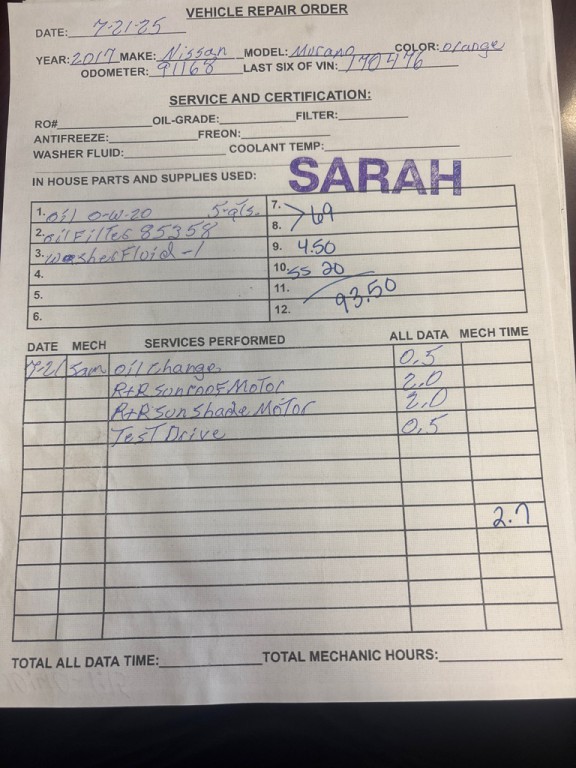 VEHICLE REPAIR ORDER
DATE: 7-21-25
YEAR: 2017 MAKE: Nissan MODEL: Murano COLOR: orange
ODOMETER: 91168 LAST SIX OF VIN: 170476
SERVICE AND CERTIFICATION:
RO# OIL-GRADE: FILTER:
ANTIFREEZE: FREON:
WASHER FLUID: COOLANT TEMP:
IN HOUSE PARTS AND SUPPLIES USED: SARAH
1. oil 0-W-20 5-qts. 7.
2. oil Filter 85358 8. > 69
3. washer Fluid -1 9. 4.50
4. 10. SS 20
5. 11. 93.50
6. 12.
DATE MECH SERVICES PERFORMED ALL DATA MECH TIME
7-21 Sam oil change 0.5
R+R Sunroof Motor 2.0
R+R Sun Shade Motor 2.0
Test Drive 0.5
2.7
TOTAL ALL DATA TIME: TOTAL MECHANIC HOURS: